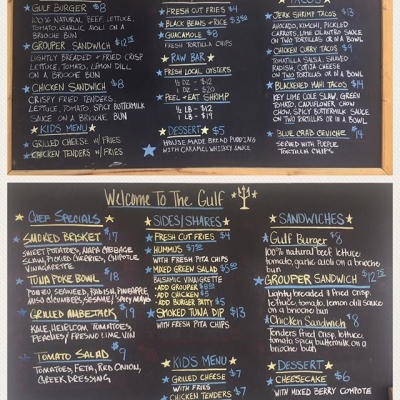 GULF BURGER $8
100% NATURAL BEEF, LETTUCE,
TOMATO, GARLIC AIOLI ON A
BRIOCHE BUN
GROUPER SANDWICH $12.75
LIGHTLY BREADED + FRIED CRISP
LETTUCE, TOMATO, LEMON DILL
ON A BRIOCHE BUN
CHICKEN SANDWICH $8
CRISPY FRIED TENDERS,
LETTUCE, TOMATO, SPICY BUTTERMILK
SAUCE ON A BRIOCHE BUN
KIDS MENU
GRILLED CHEESE W/ FRIES
CHICKEN TENDERS W/ FRIES
FRESH CUT FRIES $4
BLACK BEANS + RICE $3.50
GUACAMOLE $8
FRESH TORTILLA CHIPS
RAW BAR
FRESH LOCAL OYSTERS
1/2 DZ - $12
1 DZ - $20
PEEL + EAT SHRIMP
1/2 LB - $12
1 LB - $19
DESSERT $5
HOUSE MADE BREAD PUDDING
WITH CARAMEL WHISKEY SAUCE
TACOS
JERK SHRIMP TACOS $13
AVOCADO, KIMCHI, PICKLED
CARROTS, LIME CILANTRO SAUCE
ON TWO TORTILLAS OR IN A BOWL
CHICKEN CURRY TACOS $9
TOMATILLA SALSA, SHAVED
RADISH, COTIJA CHEESE
ON TWO TORTILLAS OR IN A BOWL
BLACKENED MAHI TACOS $14
KEY LIME COLE SLAW, GREEN
TOMATO, CAULIFLOWER CHOW
CHOW, SPICY BUTTERMILK SAUCE
ON TWO TORTILLAS OR IN A BOWL
BLUE CRAB CEVICHE $14
SERVED WITH PURPLE
TORTILLA CHIPS
Welcome To The Gulf
CHEF SPECIALS
SMOKED BRISKET $17
SWEET POTATOES, NAPA CABBAGE
SLAW, PICKLED CHERRIES, CHIPOTLE
VINAIGRETTE
TUNA POKE BOWL $18
PONZU, SEAWEED, RADISH, PINEAPPLE,
MISO CUCUMBERS, SESAME/SPICY MAYO
GRILLED AMBERJACK $19
KALE, HEIRLOOM TOMATOES,
PEACHES/FRESNO LIME VIN
TOMATO SALAD $9
TOMATOES, FETA, RED ONION,
GREEK DRESSING
SIDES/SHARES
FRESH CUT FRIES $4
HUMMUS $7.50
WITH FRESH PITA CHIPS
MIXED GREEN SALAD $5.50
BALSAMIC VINAIGRETTE
ADD GROUPER $8
ADD CHICKEN $5
ADD BURGER PATTY $5
SMOKED TUNA DIP $13
WITH FRESH PITA CHIPS
KID'S MENU
GRILLED CHEESE $7
WITH FRIES
CHICKEN TENDERS $7
SANDWICHES
Gulf Burger $8
100% natural beef lettuce
tomato, garlic aioli on a brioche
bun
GROUPER SANDWICH $12.75
Lightly breaded & fried crisp
lettuce, tomato, lemon dill Sauce
on a brioche bun
Chicken Sandwich $8
Tenders fried Crisp, lettuce,
tomato spicy buttermilk on a
brioche bun
DESSERT
CHEESECAKE $6
WITH MIXED BERRY COMPOTE